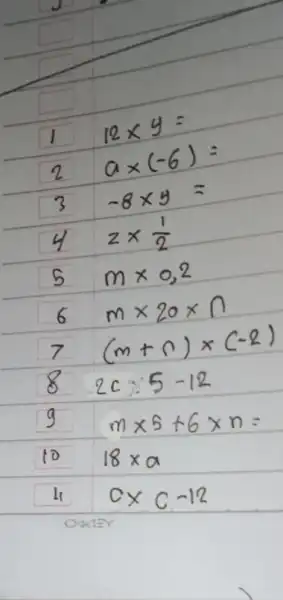 1 12 × y =
2 a × (-6) =
3 -8 × y =
4 z × 1/2
5 m × 0,2
6 m × 20 × n
7 (m + n) × (-2)
8 2c : 5 - 12
9 m × 5 + 6 × n =
10 18 × a
11 0 × c - 12